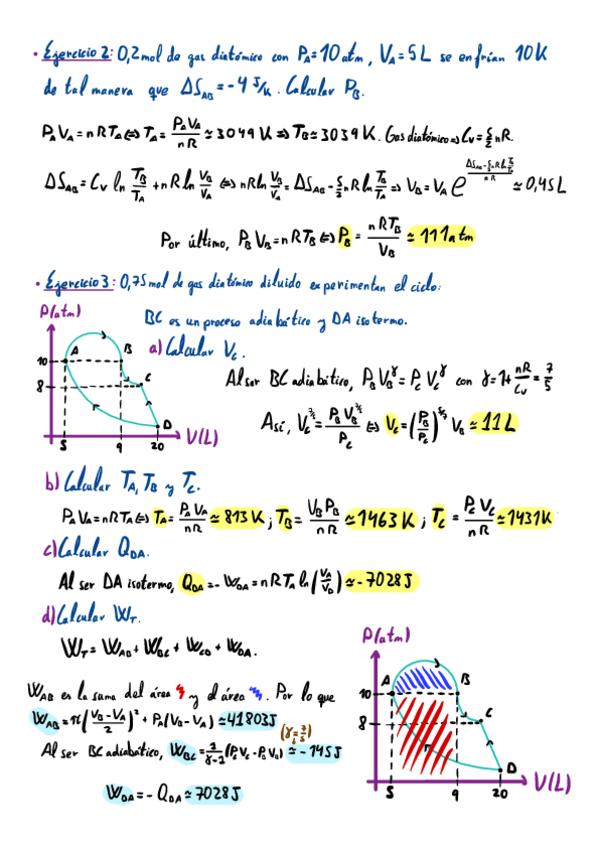 • Ejercicio 2: 0,2 mol de gas diatómico con P_A = 10 atm, V_A = 5 L se enfrían 10 K
de tal manera que ΔS_AB = -4 J/K. Calcular P_B.
P_A V_A = nRT_A ⇔ T_A = P_A V_A / nR ≃ 3049 K ⇒ T_B ≃ 3039 K. Gas diatómico ⇒ C_V = 5/2 nR.
ΔS_AB = C_V ln T_B/T_A + nR ln V_B/V_A ⇔ nR ln V_B/V_A = ΔS_AB - 5/2 nR ln T_B/T_A ⇒ V_B = V_A e^((ΔS_AB - 5/2 nR ln T_B/T_A) / nR) ≃ 0,45 L
Por último, P_B V_B = nRT_B ⇔ P_B = nRT_B / V_B ≃ 111 atm
• Ejercicio 3: 0,75 mol de gas diatómico diluido experimentan el ciclo:
P(atm)
10
8
A
B
C
D
5
9
20
V(L)
BC es un proceso adiabático y DA isotermo.
a) Calcular V_C.
Al ser BC adiabático, P_B V_B^γ = P_C V_C^γ con γ = 1 + nR/C_V = 7/5
Así, V_C^(7/5) = P_B V_B^(7/5) / P_C ⇔ V_C = (P_B/P_C)^(5/7) V_B ≃ 11 L
b) Calcular T_A, T_B y T_C.
P_A V_A = nRT_A ⇔ T_A = P_A V_A / nR ≃ 813 K ; T_B = V_B P_B / nR ≃ 1463 K ; T_C = P_C V_C / nR ≃ 1431 K
c) Calcular Q_DA.
Al ser DA isotermo, Q_DA = -W_DA = nRT_A ln(V_A/V_D) ≃ -7028 J
d) Calcular W_T.
W_T = W_AB + W_BC + W_CD + W_DA.
W_AB es la suma del área y el área . Por lo que
W_AB = π((V_B - V_A)/2)² + P_A(V_B - V_A) ≃ 41803 J
Al ser BC adiabático, W_BC = 1/(γ-1) (P_C V_C - P_B V_B) ≃ -145 J
W_DA = -Q_DA ≃ 7028 J
P(atm)
10
8
A
B
C
D
5
9
20
V(L)